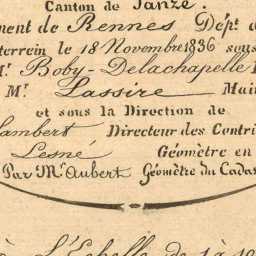 Canton de Janzé.
ment de Rennes Dépt.
terrein le 18 Novembre 1836 sous
Mr. Boby-Delachapelle
Mr. Lassire Mai
et sous la Direction de
Lambert Directeur des Contri
Lesné Géomètre en
Par Mr. Aubert Géomètre du Cadas
L'Échelle de 1 à